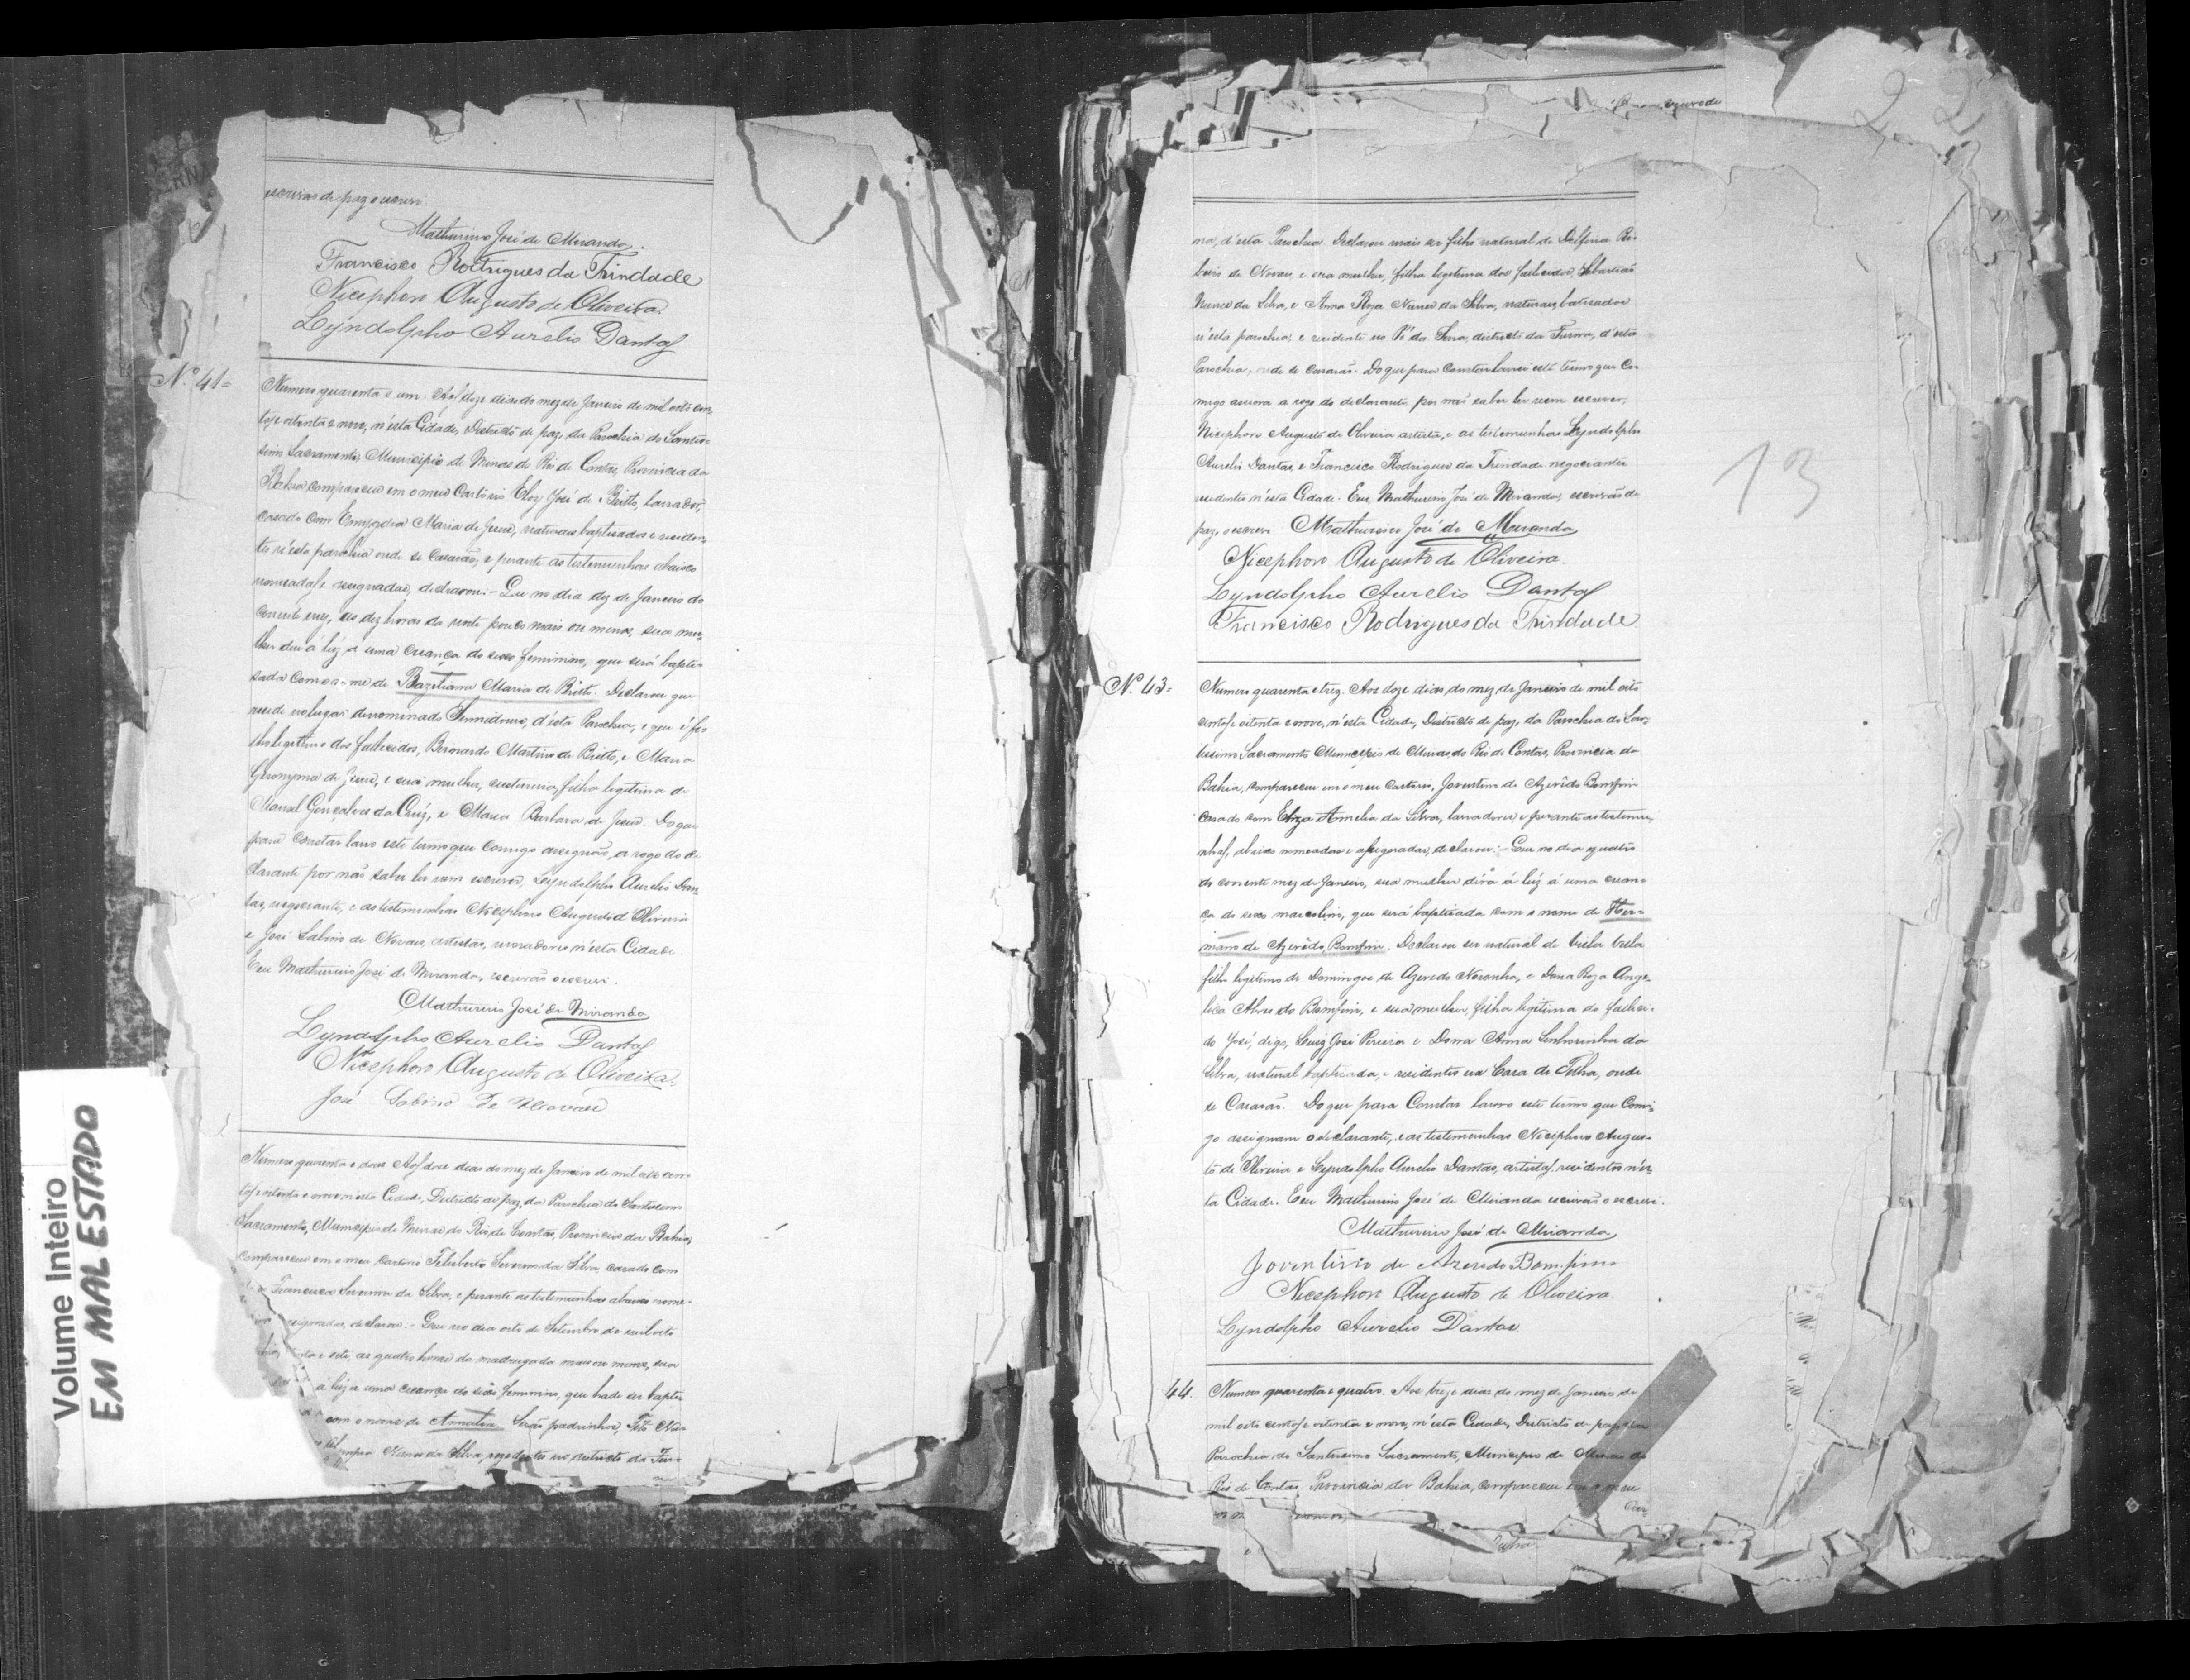 escrivão de paz o escrevi.
Mathurino José de Miranda.
Francisco Rodrigues da Trindade
Nicephoro Augusto de Oliveira.
Lyndolpho Aurelio Dantas
Nº 41=
Numero quarenta e um. Aos doze dias do mez de Janeiro de mil oito cen-
tos e oitenta e nove, n'esta Cidade, Districto de paz, da Parochia do Santis-
simo Sacramento, Municipio de Minas do Rio de Contas, Provincia da
Bahia compareceu em o meu Cartorio Eloy José de Britto, lavrador,
casado com Maria de Jesus, naturaes baptisados e residen-
tes n'esta parochia onde se casarão, e perante as testemunhas abaixo
nomeadas e assignadas, declarou:- Que no dia dez de Janeiro do
corrente mez, as dez horas da noite pouco mais ou menos, sua mu-
lher deu á luz a uma creança do sexo feminino, que será bapti-
sada com o nome de Bazeliana Maria de Britto. Declarou que
reside no lugar denominado Sumidouro, d'esta Parochia, e que é fi-
lho legitimo dos fallecidos, Bernardo Martins de Britto, e Maria
Geronyma de Jesus, e sua mulher, filha legitima de
Manoel Gonçalves da Cruz, e Maria Barbara de Jesus. Do que
para constar lavro este termo que comigo assignão, a rogo do de-
clarante por não saber ler nem escrever, Lyndolpho Aurelio Dan-
tas, negociante, e as testemunhas Nicephoro Augusto d'Oliveira
e José Sabino de Novaes, artistas, moradores n'esta Cidade
Eu Mathurino José de Miranda, escrivão o escrevi.
Mathurino José de Miranda
Lyndolpho Aurelio Dantas
Nicephoro Augusto de Oliveira.
José Sabino de Novaes
Numero quarenta e dous Aos doze dias do mez de Janeiro de mil oito cen-
tos e oitenta e nove n'esta Cidade, Districto de paz, da Parochia do Santissimo
Sacramento, Municipio de Minas do Rio de Contas, Provincia da Bahia,
compareceu em o meu Cartorio Feliberto Severino da Silva, casado com
Francisca da Silva, e perante as testemunhas abaixo nome-
assignadas, declarou:- Que no dia oito de Setembro de mil oito
e sete, as quatro horas da madrugada mais ou menos, sua
á luz a uma creança do sexo feminino, que hade ser bapti-
com o nome de Amalia. Serão padrinhos,
Nunes da Silva, residentes no districto da Fur-
22
13
na, d'esta Parochia. Declarou mais ser filho natural de Delfina Ri-
beiro de Novaes, e sua mulher, filha legitima dos fallecidos, Sebastião
Nunes da Silva, e Anna Roza Nunes da Silva, naturaes, batisados
n'esta parochia, e residente no Pé da Serra, districto da Furna, d'esta
Parochia, onde se casarão. Do que para constar lavrei este termo que Co-
migo assigna a rogo do declarante, por não saber ler nem escrever,
Nicephoro Augusto de Oliveira artista, e as testemunhas Lyndolpho
Aurelio Dantas, e Francisco Rodrigues da Trindade negociantes
residentes n'esta Cidade. Eu, Mathurino José de Miranda, escrivão de
paz, o escrevi Mathurino José de Miranda
Nicephoro Augusto de Oliveira.
Lyndolpho Aurelio Dantas
Francisco Rodrigues da Trindade
Nº 43=
Numero quarenta e trez. Aos doze dias do mez de Janeiro de mil oito
centos e oitenta e nove, n'esta Cidade, Districto de paz, da Parochia do San-
tissimo Sacramento Municipio de Minas do Rio de Contas, Provincia da
Bahia, compareceu em o meu Cartorio, Joventino de Azevêdo Bomfim
casado com Eliza Amelia da Silva, lavradores e perante as testemu-
nhas, abaixo nomeadas e assignadas, declarou:- Que no dia quatro
do corrente mez de Janeiro, sua mulher déra á luz á uma crean-
ça do sexo masculino, que será baptisada com o nome de Her-
mano de Azevêdo Bomfim. Declarou ser natural de
filho legitimo de Domingos de Azevedo Noronha, e Dona Roza Ange-
lica Alves do Bomfim, e sua mulher, filha legitima do falleci-
do José, digo, Luiz José Pereira e Dona Anna Senhorinha da
Silva, natural baptisada, e residentes na Casa de Telha, onde
se casarão. Do que para Constar lavro este termo que Comi-
go assignam o declarante, e as testemunhas Nicephoro Augus-
to de Oliveira e Lyndolpho Aurelio Dantas, artistas, residentes n'es-
ta Cidade. Eu Mathurino José de Miranda escrivão o escrevi.
Mathurino José de Miranda
Joventino de Azevedo Bomfim
Nicephoro Augusto de Oliveira.
Lyndolpho Aurelio Dantas.
44.
Numero quarenta e quatro. Aos treze dias do mez de Janeiro de
mil oito centos e oitenta e nove, n'esta Cidade, Districto de paz, da
Parochia do Santissimo Sacramento, Municipio de Minas do
Rio de Contas, Provincia da Bahia, compareceu em o meu
Car-
Volume Inteiro
EM MAL ESTADO